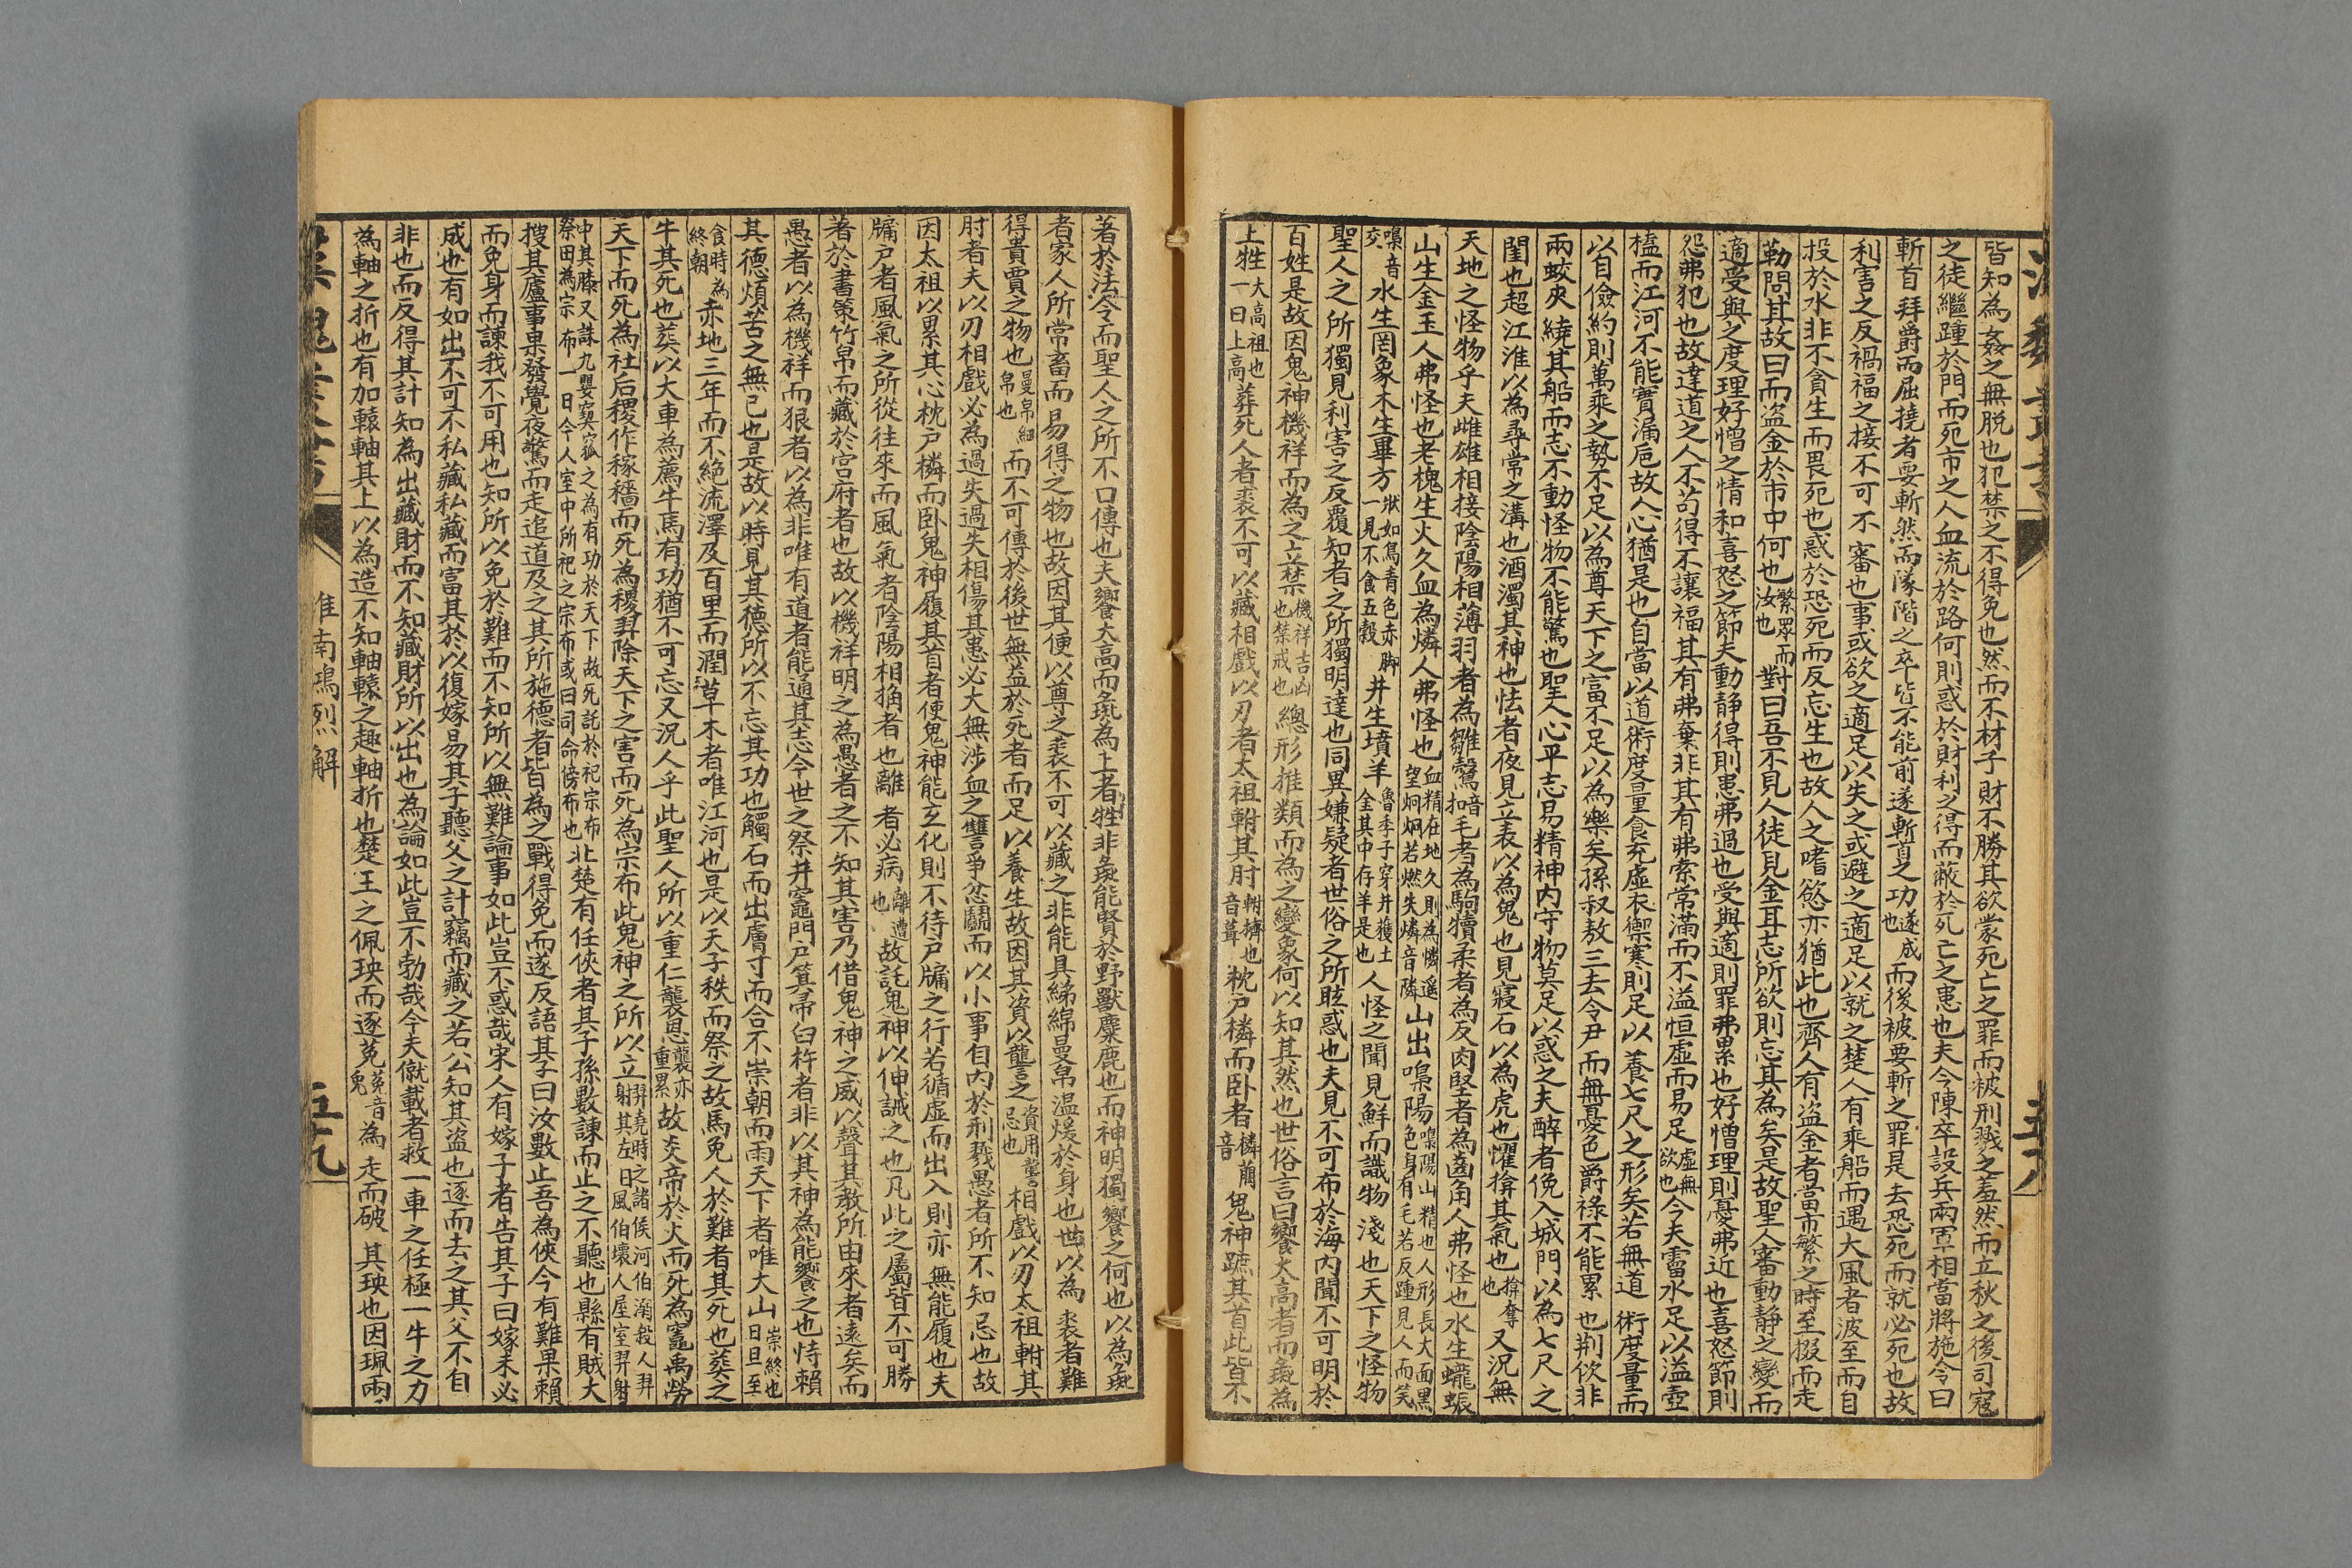 皆知為姦之無脫也犯禁之不得免也然而不材子財不勝其欲蒙死亡之罪而被刑戮之羞然而立秋之後司寇
之徒繼踵於門而死市之人血流於路何則惑於財利之得而蔽於死亡之患也夫今陳卒設兵兩軍相當將施令曰
斬首拜爵而屈撓者要斬然而隊階之卒皆不能前遂斬首之功遂成也而後被要斬之罪是去恐死而就必死也故
利害之反禍福之接不可不審也事或欲之適足以失之或避之適足以就之楚人有乘船而遇大風者波至而自
投於水非不貪生而畏死也惑於恐死而反忘生也故人之嗜慾亦猶此也齊人有盜金者當市繁之時至掇而走
勒問其故曰而盜金於市中何也繁眾而汝也對曰吾不見人徒見金耳志所欲則忘其為矣是故聖人審動靜之變而
適受與之度理好憎之情和喜怒之節夫動靜得則患弗過也受與適則罪弗累也好憎理則憂弗近也喜怒節則
怨弗犯也故達道之人不苟得不讓福其有弗棄非其有弗索常滿而不溢恒虛而易足虛無欲也今夫霤水足以溢壺
榼而江河不能實漏卮故人心猶是也自當以道術度量食充虛衣禦寒則足以養七尺之形矣若無道術度量而
以自儉約則萬乘之勢不足以為尊天下之富不足以為樂矣孫叔敖三去令尹而無憂色爵祿不能累也荆佽非
兩蛟夾繞其船而志不動怪物不能驚也聖人心平志易精神內守物莫足以惑之夫醉者俛入城門以為七尺之
閨也超江淮以為尋常之溝也酒濁其神也怯者夜見立表以為鬼也見寢石以為虎也懼揜其氣也揜奪也又況無
天地之怪物乎夫雌雄相接陰陽相薄羽者為雛鷇音扣毛者為駒犢柔者為皮肉堅者為齒角人弗怪也水生蠬蜄
山生金玉人弗怪也老槐生火久血為燐人弗怪也血精在地久則為燐遥望炯炯若燃失燐音隣山出嘄陽嘄陽山精也人形長大面黑色身有毛若反踵見人而笑
嘄音交水生罔象木生畢方狀如鳥青色赤脚一見不食五穀井生墳羊魯季子穿井獲土金其中存羊是也人怪之聞見鮮而識物淺也天下之怪物
聖人之所獨見利害之反覆知者之所獨明達也同異嫌疑者世俗之所眩惑也夫見不可布於海內聞不可明於
百姓是故因鬼神機祥而為之立禁機祥吉凶也禁戒也總形推類而為之變象何以知其然也世俗言曰饗大高者而彘為
上牲大高祖也一曰上高葬死人者裘不可以藏相戲以刃者太祖軵其肘軵擠也音葺枕戶橉而卧者橉藺音鬼神蹠其首此皆不
著於法令而聖人之所不口傳也夫饗大高而彘為上者牲非彘能賢於野獸麋鹿也而神明獨饗之何也以為彘
者家人所常畜而易得之物也故因其便以尊之裘不可以藏之非能具綈綿曼帛温煖於身也世以為裘者難
得貴賈之物也曼帛細帛也而不可傳於後世無益於死者而足以養生故因其資以讋之資用讋忌也相戲以刃太祖軵其
肘者夫以刃相戲必為過失過失相傷其患必大無涉血之讐爭忿鬭而以小事自內於刑戮愚者所不知忌也故
因太祖以累其心枕戶橉而卧鬼神履其首者使鬼神能玄化則不待戶牖之行若循虛而出入則亦無能履也夫
牖戶者風氣之所從往來而風氣者陰陽相捔者也離者必病離遭也故託鬼神以伸誡之也凡此之屬皆不可勝
著於書策竹帛而藏於宮府者也故以機祥明之為愚者之不知其害乃借鬼神之威以聲其教所由來者遠矣而
愚者以為機祥而狠者以為非唯有道者能通其志今世之祭井竈門戶箕帚臼杵者非以其神為能饗之也恃賴
其德煩苦之無已也是故以時見其德所以不忘其功也觸石而出膚寸而合不崇朝而雨天下者唯大山崇終也日旦至
食時為終朝赤地三年而不絕流澤及百里而潤草木者唯江河也是以天子秩而祭之故馬免人於難者其死也葬之
牛其死也葬以大車為薦牛馬有功猶不可忘又況人乎此聖人所以重仁襲恩襲亦重累故炎帝於火而死為竈禹勞
天下而死為社后稷作稼穡而死為稷羿除天下之害而死為宗布此鬼神之所以立羿堯時之諸侯河伯溺殺人羿射其左目風伯壞人屋室羿射
中其膝又誅九嬰窫窳之為有功於天下故死託於祀宗布祭田為宗布一日今人室中所祀之宗布或曰司命傍布也北楚有任俠者其子孫數諫而止之不聽也縣有賊大
搜其廬事果發覺夜驚而走追道及之其所施德者皆為之戰得免而遂反語其子曰汝數止吾為俠今有難果賴
而免身而諫我不可用也知所以免於難而不知所以無難論事如此豈不惑哉宋人有嫁子者告其子曰嫁未必
成也有如出不可不私藏私藏而富其於以復嫁易其子聽父之計竊而藏之若公知其盜也逐而去之其父不自
非也而反得其計知為出藏財而不知藏財所以出也為論如此豈不勃哉今夫僦載者救一車之任極一牛之力
為軸之折也有加轅軸其上以為造不知軸轅之趣軸折也楚王之佩玦而逐菟菟音鬼為走而破其玦也因珮兩
淮南鴻烈解
五十九